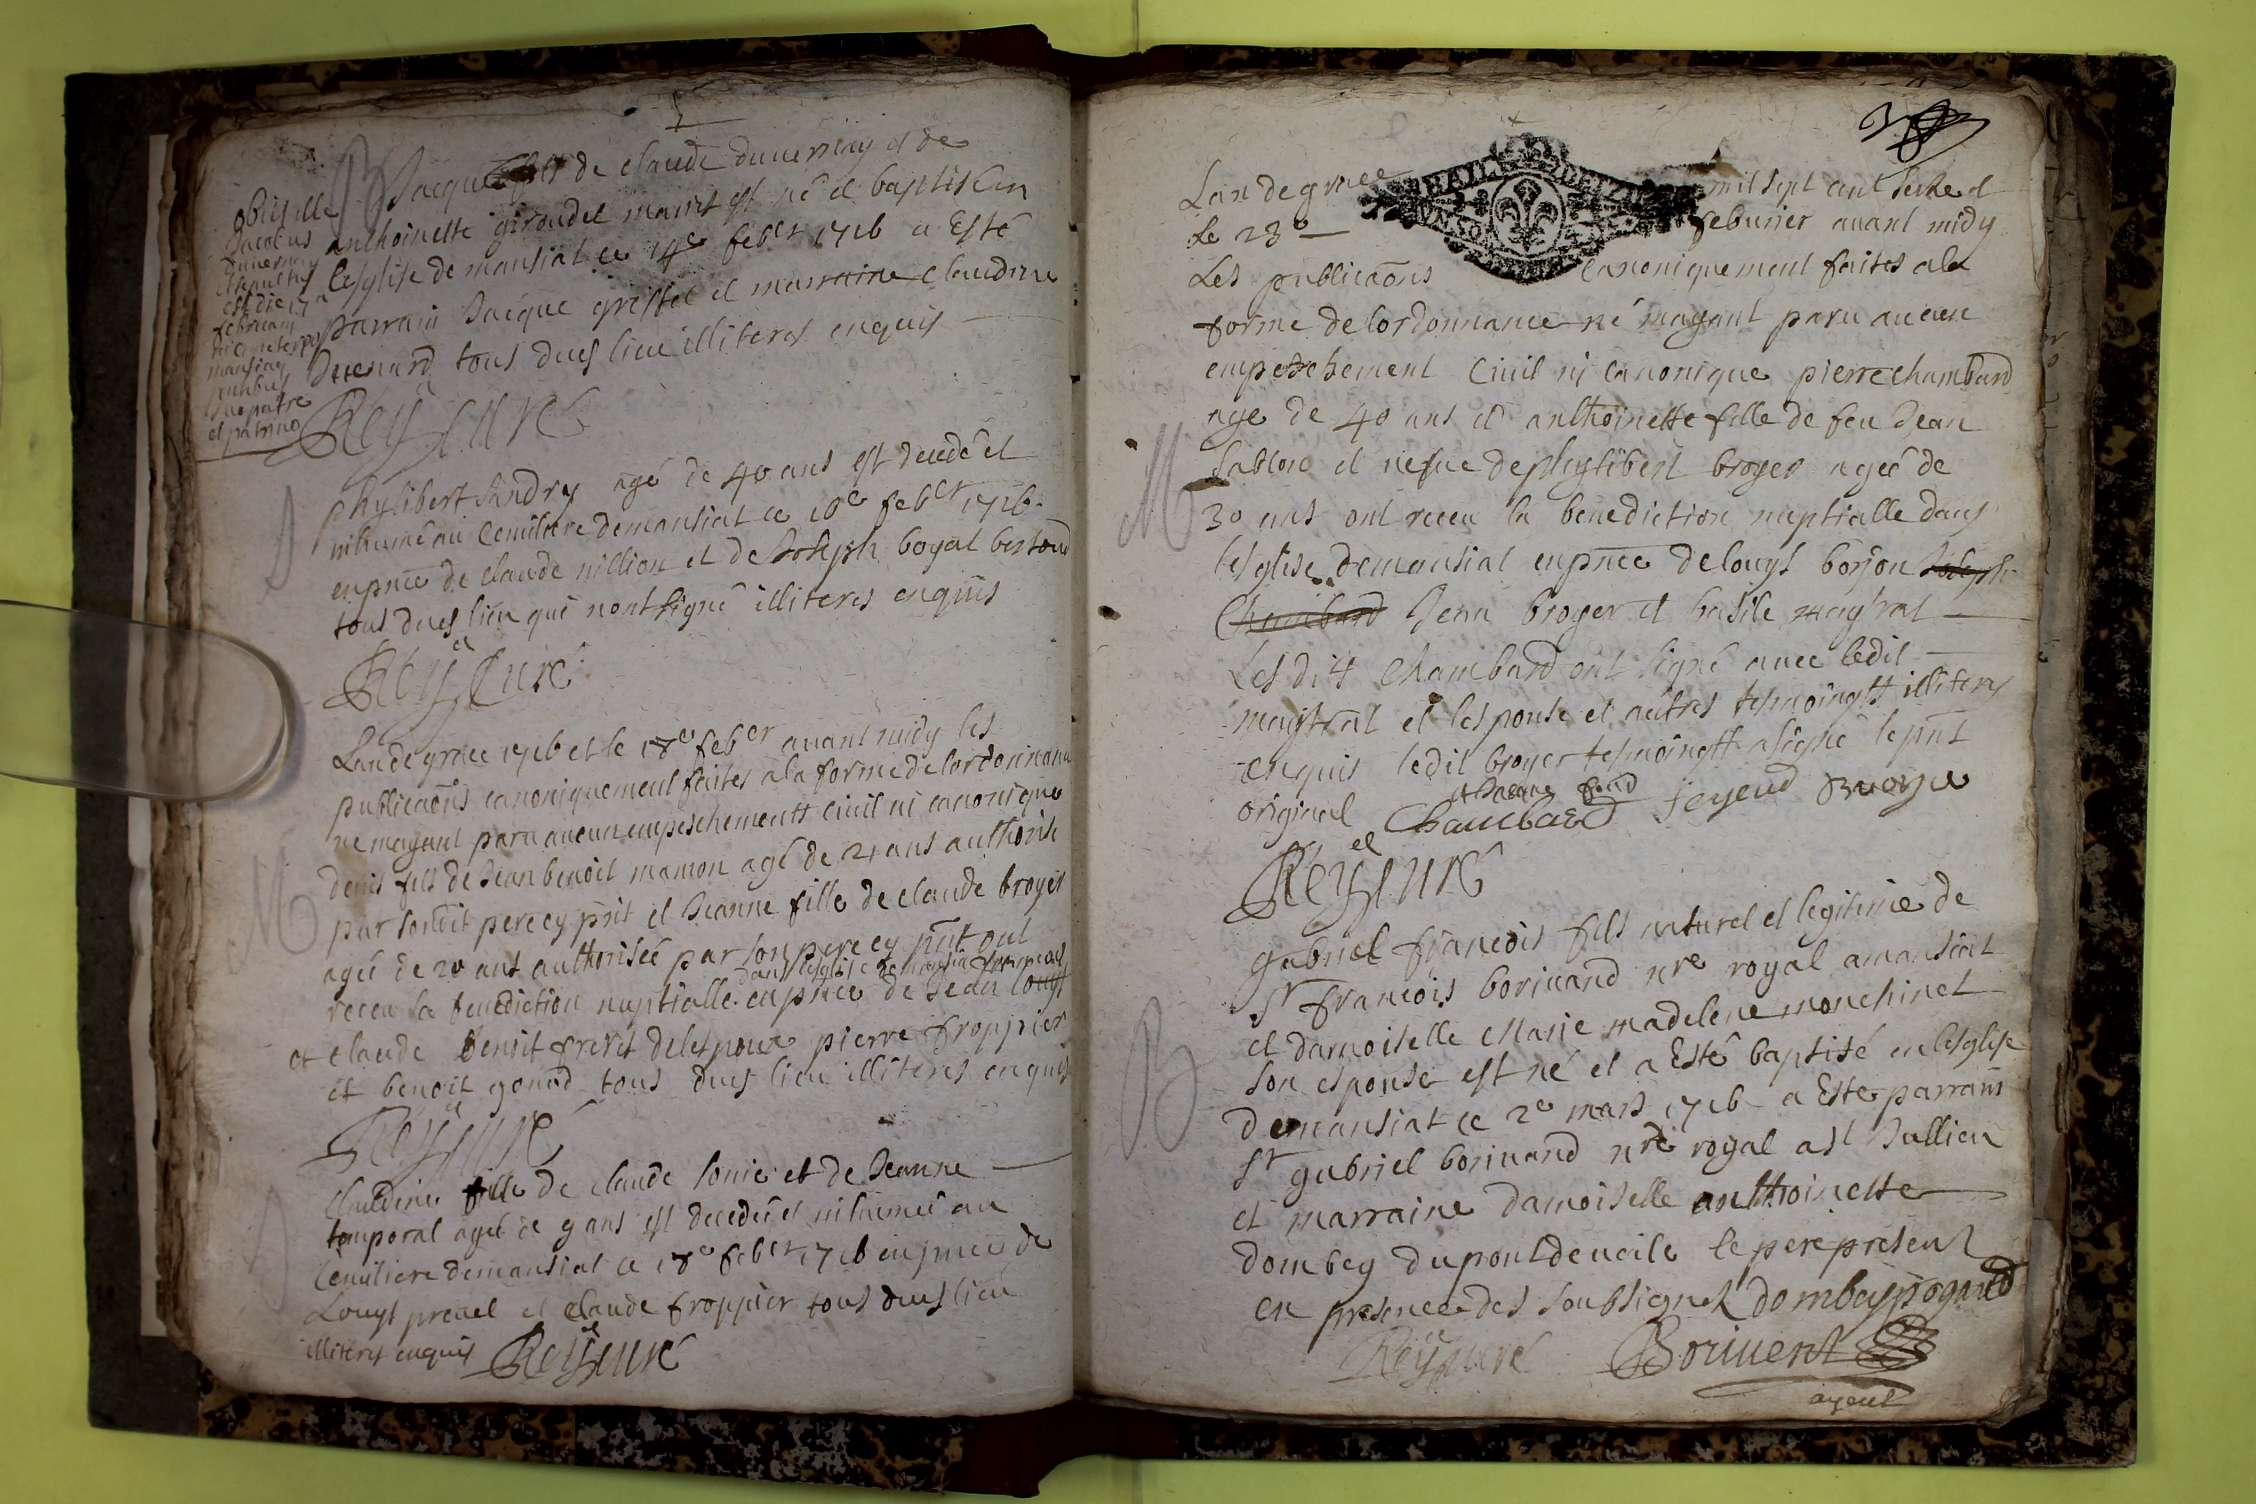 B
Jacque fils de claude duvernay et de
anthoinette giroudet maries est né et baptisé en
lesglise de mansiat ce 14e feber 1716 a Esté
parrain Jacque griffet et marraine claudine
tous dues lieu illiteres enquis
obiit ille
Jacobus
duvernay
sepultus
est die 17a
februarij
in cimeterio
mansiaci
suo patre
et patrino
Rey curé
phylibert Andry agé de 40 ans est decedé et
inhumé au Cemitiere de mansiat ce 16e feber 1716
en pnce de claude nillion et de Joseph boyat
tous dues lieu qui nont signé illiteres enquis
Rey Curé
M
Lan de grace 1716 et le 18e feber avant midy les
publicaõns canoniquement faites a la forme de lordonnance
ne mayant paru aucun empeschements civil ni canonique
denis fils de Jean benoit mamon agé de 21 ans authorisé
par sondit pere cy pnt et Jeanne fille de claude broyer
ageé de 20 ans authoriseé par son pere cy pnt ont
receu la benediction nuptialle dans lesglise de mansiat en pnce de Jean louys
et claude Benoit freres de lespoux pierre froppier
et benoit gonod tous dues lieu illiteres enquis
Rey curé
Claudine fille de claude Sonie et de Jeanne
temporal ageé de 9 ans est decedeé et inhumeé au
Cemitiere de mansiat ce 18e feber 1716 en pnce de
Louys preuel et claude froppier tous dues lieu
illiteres enquis Rey curé
Lan de grace mil sept cent seise et
Le 23e feburier avant midy
Les publicaõns canoniquement faites a la
forme de lordonnance né mayant paru aucun
empechement Civil ni Canonique pierre chambard
age de 40 ans et anthoinette fille de feu Jean
Sablon et vefue de phylibert broyer ageé de
M
30 ans ont receu la benediction nuptialle dans
lesglise de mansiat en pnce de louys borjon Joseph
Chambard Jean broyer et basile maystrat
Les dits Chambard ont signé avec ledit
maystrat et lespouse et autres tesmoingts illiteres
enquis ledit broyer tesmoingtt a signé le pnt
original Chambard
Rey curé
gabriel francois fils naturel et legitime de
Sr francois borivand nre royal a mansiat
et damoiselle Marie madelene monchinet
B
son espouse est né et a Esté baptisé en lesglise
de mansiat ce 2e mars 1716 a Esté parrain
Sr gabriel borivand nre royal a st Jullien
et marraine damoiselle anthoinette
dombey du pont de veile le pere present
en presence des soubsignez dombey pogard
Rey curé Borivent
ayeul